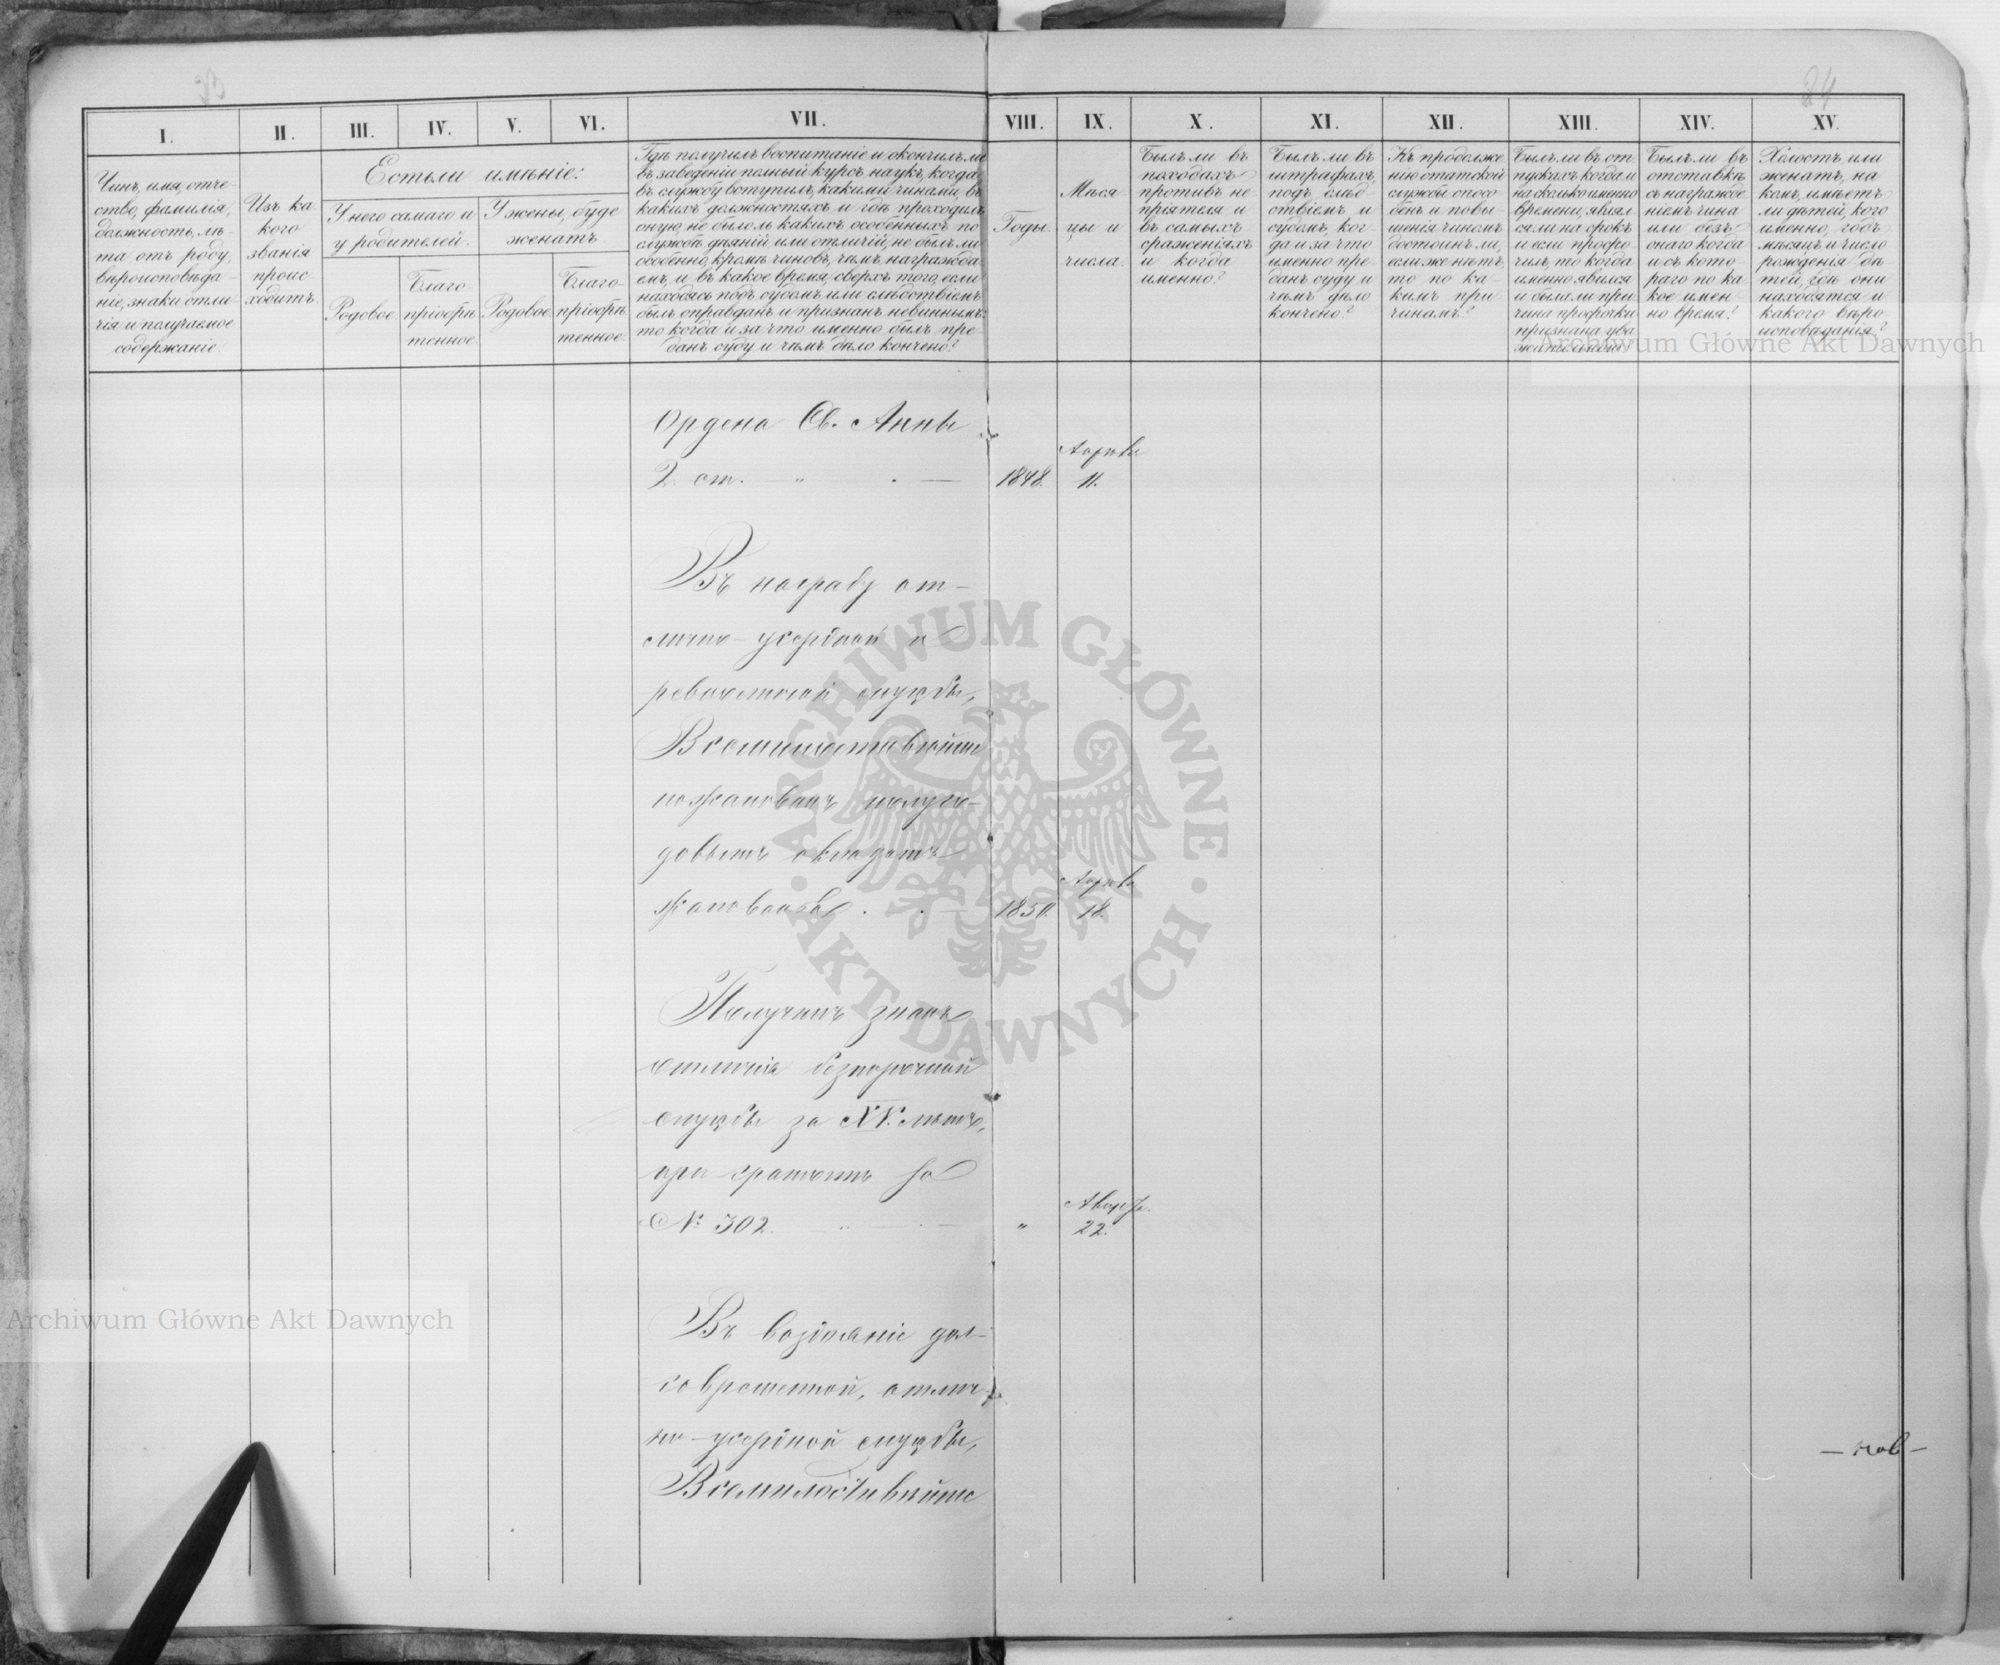 24
I.
II.
III.
IV.
V.
VI.
VII.
VIII.
IX.
X.
XI.
XII.
XIII.
XIV.
XV.
Чинъ, имя, отче-
ство, фамилія,
должность, лѣ-
та отъ роду,
вѣроисповѣда-
ніе, знаки отли-
чія и получаемое
содержаніе.
Изъ ка
кого
званія
проис-
ходитъ.
Есть ли имѣніе:
У него самаго и
у родителей.
У жены, буде
женатъ.
Родовое.
Благо-
пріобрѣ-
тенное.
Родовое.
Благо-
пріобрѣ-
тенное.
Гдѣ получилъ воспитаніе и окончилъ ли
въ заведеніи полный курсъ наукъ, когда
въ службу вступилъ, какими чинами, въ
какихъ должностяхъ и гдѣ проходилъ
оную, не было ль какихъ особенныхъ по
службѣ дѣяній или отличій, не былъ ли
особенно, кромѣ чиновъ, чѣмъ награжда-
емъ, и въ какое время, сверхъ того, если
находясь подъ судомъ или слѣдствіемъ
былъ оправданъ и признанъ невиннымъ:
то когда и за что именно былъ пре-
данъ суду и чѣмъ дѣло кончено?
Годы.
Мѣся-
цы и
числа.
Былъ ли въ
походахъ
противъ не-
пріятеля и
въ самыхъ
сраженіяхъ
и когда
именно?
Былъ ли въ
штрафахъ,
подъ слѣд-
ствіемъ и
судомъ, ког-
да и за что
именно пре-
данъ суду и
чѣмъ дѣло
кончено?
Къ продолже
нію статской
службы спосо-
бенъ и повы-
шенія чиномъ
достоинъ ли,
если же нѣтъ,
то по ка-
кимъ при-
чинамъ?
Былъ ли въ от-
пускахъ когда и
на сколько именно
времени, являл-
ся ли на срокъ
и если просро-
чилъ, то когда
именно явился
и была ли при-
чина просрочки
признана ува
жительною?
Былъ ли въ
отставкѣ,
съ награжде-
ніемъ чина
или безъ
онаго когда
и съ кото-
раго по ка-
кое имен-
но время?
Холостъ или
женатъ, на
комъ, имѣетъ
ли дѣтей, кого
именно, годъ
мѣсяцъ и число
рожденія дѣ-
тей, гдѣ они
находятся и
какого вѣро-
исповѣданія?
Archiwum Główne Akt Dawnych
Ордена Св. Анны
2. ст. 1848. Апрѣля 11.
Въ награду от-
лично-усердной и
ревностной службы,
Всемилостивѣйше
пожалованъ полуго-
довымъ окладомъ
жалованья 1850. Апрѣля 18.
Получилъ знакъ
отличія безпорочной
службы за XV. лѣтъ,
при грамотѣ за
№ 302. " Август. 22.
Въ воздаяніе дол-
говременной, отлич-
но-усердной службы,
Всемилостивѣйше
ARCHIWUM GŁÓWNE
AKT DAWNYCH
Archiwum Główne Akt Dawnych